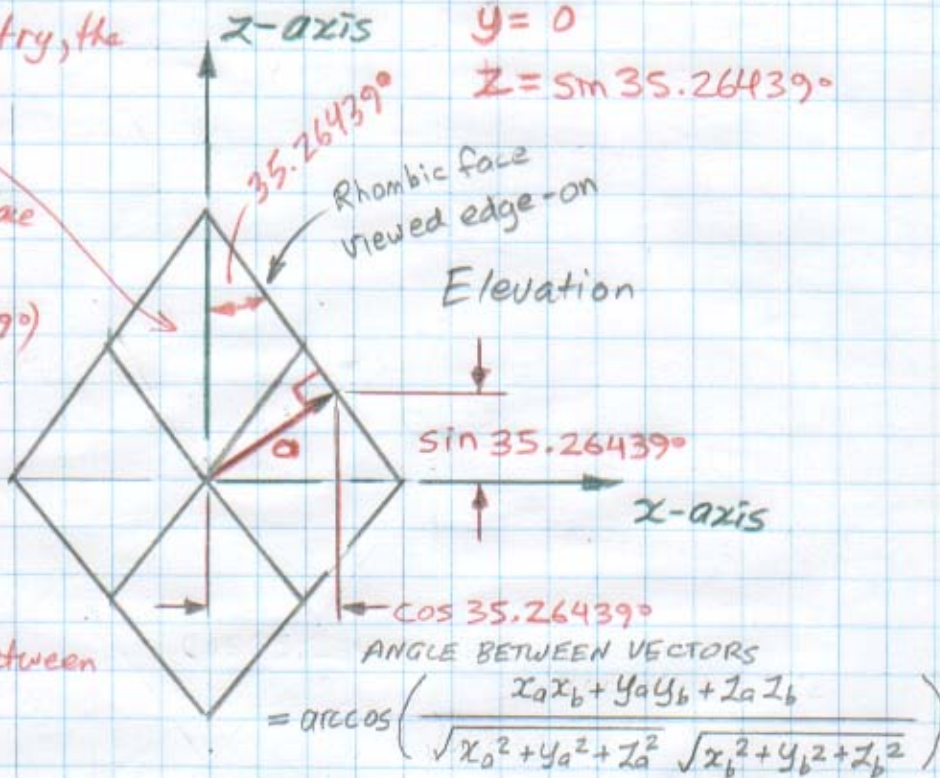 try, the
z-axis
y = 0
z = sin 35.26439°
35.26439°
Rhombic face
viewed edge-on
9°)
Elevation
a
sin 35.26439°
x-axis
cos 35.26439°
ANGLE BETWEEN VECTORS
= arccos( (xₐx_b + yₐy_b + zₐz_b) / (√(xₐ² + yₐ² + zₐ²) √(x_b² + y_b² + z_b²)) )